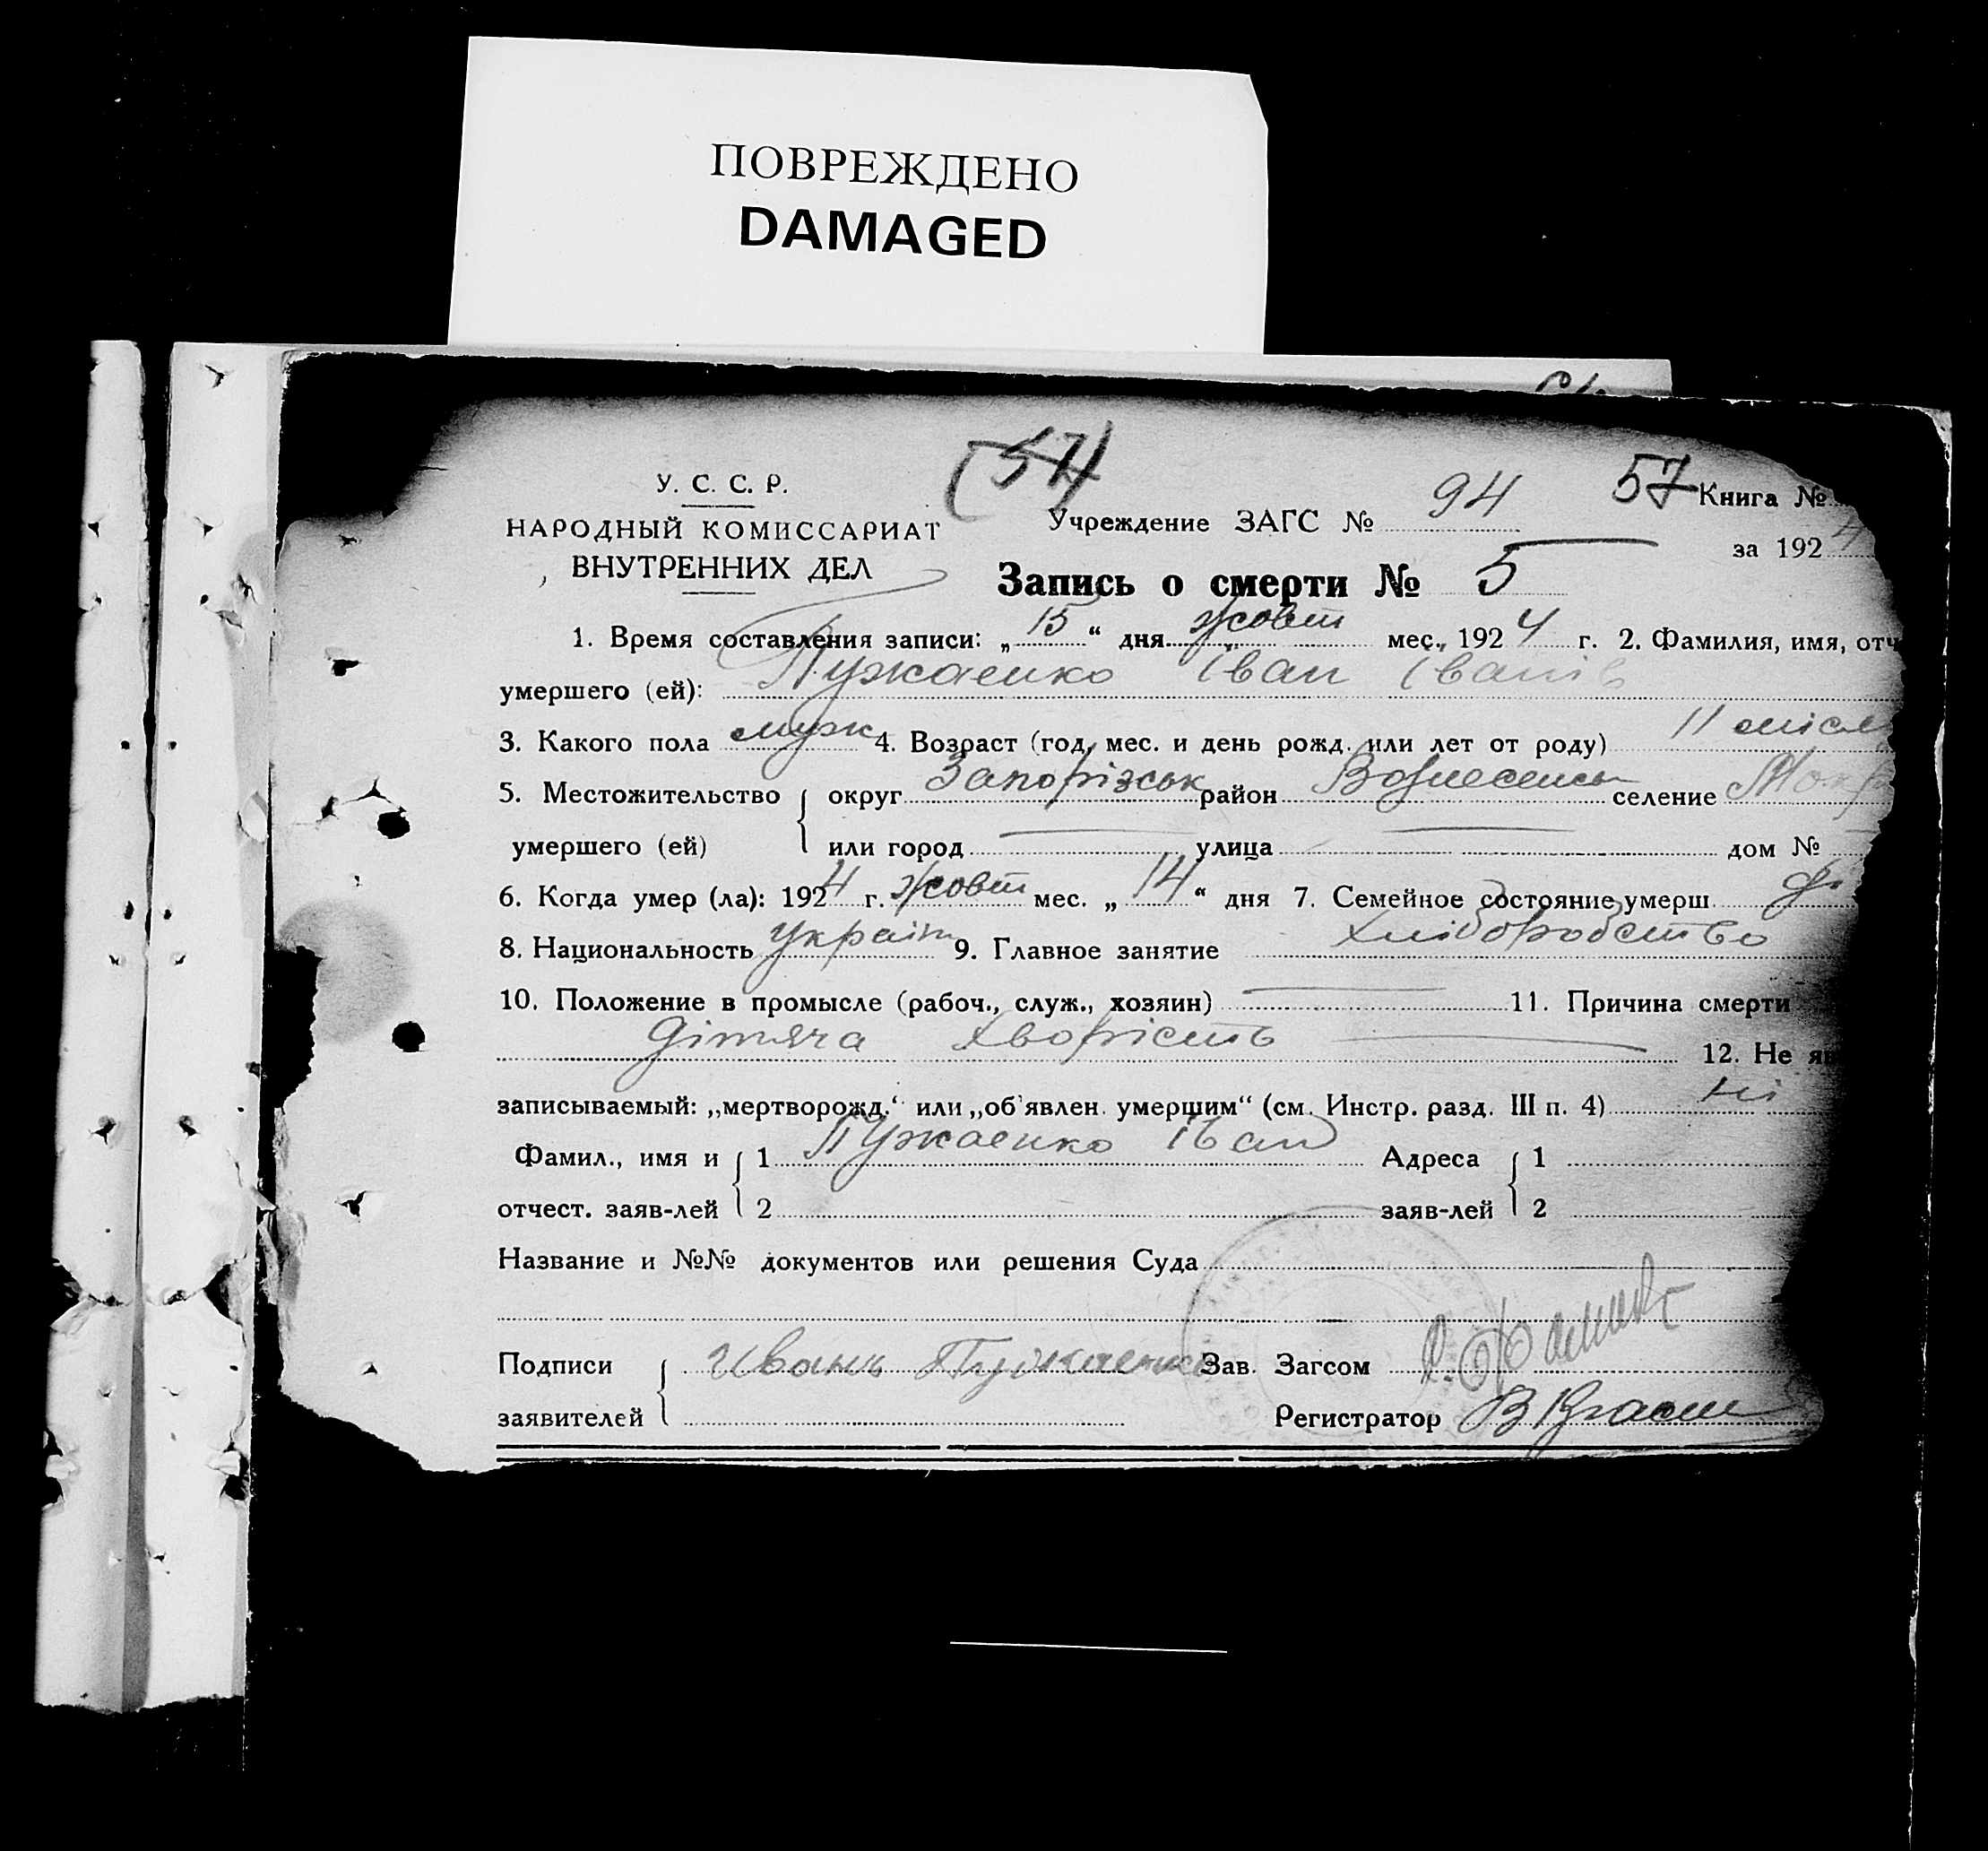 ПОВРЕЖДЕНО
DAMAGED
(57)
У. С. С. Р.
НАРОДНЫЙ КОМИССАРИАТ
ВНУТРЕННИХ ДЕЛ
Учреждение ЗАГС № 94
57 Книга №
за 1924
Запись о смерти № 5
1. Время составления записи: „15“ дня жовт мес., 1924 г. 2. Фамилия, имя, отч
умершего (ей): Пужаенко Іван Іванів
3. Какого пола муж 4. Возраст (год, мес. и день рожд. или лет от роду) 11 місяц
5. Местожительство округ Запорізськ район Вознесенськ селение Мокр
умершего (ей) или город улица дом №
6. Когда умер (ла): 1924 г. жовт мес. „14“ дня 7. Семейное состояние умерш.
8. Национальность україн 9. Главное занятие хліборобство
10. Положение в промысле (рабоч., служ., хозяин) 11. Причина смерти
дитяча хворість 12. Не яв
записываемый: „мертворожд.“ или „об'явлен. умершим“ (см. Инстр. разд. III п. 4) ні
Фамил., имя и 1 Пужаенко Іван Адреса 1
отчест. заяв-лей 2 заяв-лей 2
Название и №№ документов или решения Суда
Подписи Иванъ Пужаенко Зав. Загсом
заявителей Регистратор